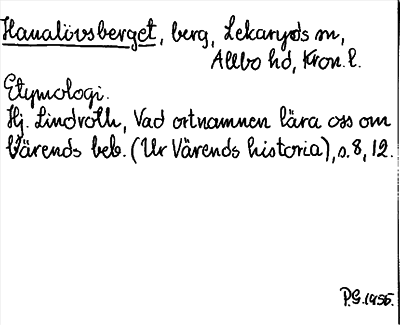 Hanalövsberget, berg, Lekaryds sn,
Allbo hd, Kron. l.
Etymologi.
Hj. Lindroth, Vad ortnamnen lära oss om
Värends beb. (Ur Värends historia), s. 8, 12.
P.G. 1955.